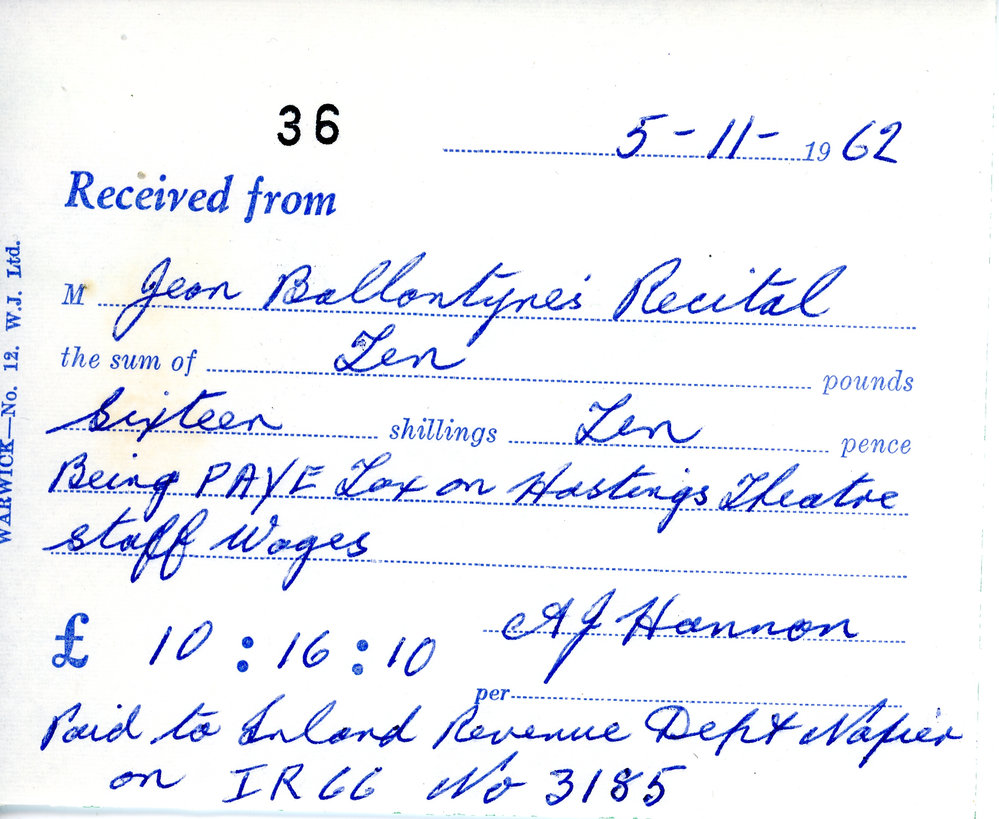 36
5-11-1962
Received from
M Jean Ballantyne's Recital
the sum of Ten pounds
Sixteen shillings Ten pence
Being PAYE Tax on Hastings Theatre
staff Wages
£ 10 : 16 : 10 AJ Hannon
per
Paid to Inland Revenue Dept Napier
on IR66 No 3185
WARWICK—No. 12. W.J. Ltd.